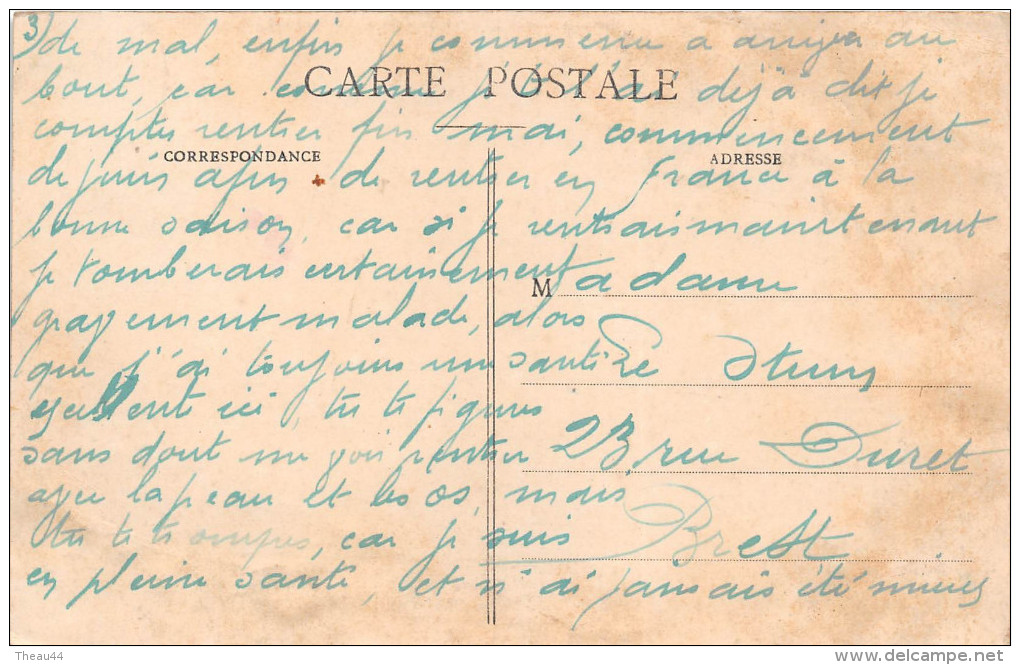 3)
de mal, enfin je commence a arriver au
CARTE POSTALE
bout, car comme je t'ai déjà dit je
comptes rentrer fin mai, commencement
CORRESPONDANCE
ADRESSE
de juin afin de rentrer en France à la
bonne saison, car si je rentrais maintenant
je tomberais certainement
Madame
gravement malade, alors
que j'ai toujours une santé
Sturm
excellente ici, tu te figures
23, rue Duret
sans dout me voir rentrer
avec la peau et les os, mais
Brest
tu te trompes, car je suis
en pleine santé, et n'ai jamais été mieux
Theau44
delcampe.net